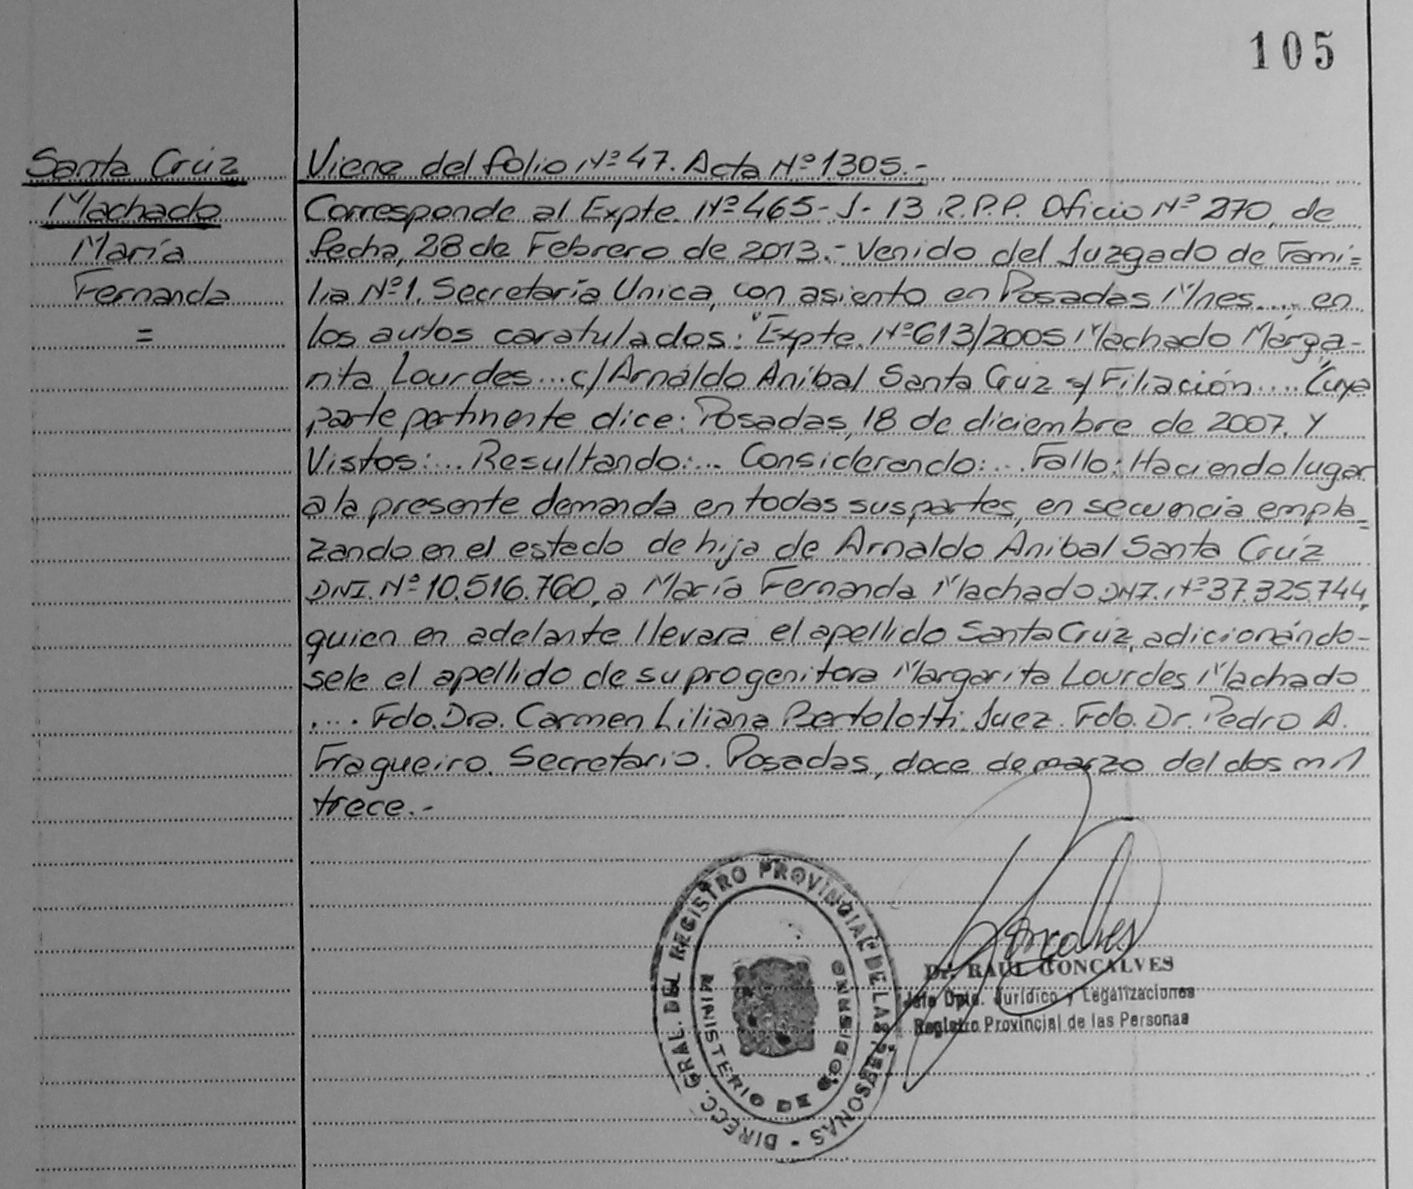 105
Santa Cruz
Machado
María
Fernanda
=
Viene del folio Nº 47. Acta Nº 1305.-
Corresponde al Expte. Nº 465-J-13 R.P.P. Oficio Nº 270, de
fecha, 28 de Febrero de 2013.- Venido del Juzgado de Fami=
lia Nº1. Secretaría Unica, con asiento en Posadas Mnes.... en
los autos caratulados: "Expte. Nº 613/2005 Machado Marga-
rita Lourdes... c/ Arnaldo Anibal Santa Cruz s/ Filiación".... Cuya
parte pertinente dice: Posadas, 18 de diciembre de 2007. Y
Vistos:... Resultando:... Considerando:... Fallo: Haciendo lugar
a la presente demanda en todas sus partes, en secuencia empla=
zando en el estado de hija de Arnaldo Anibal Santa Cruz
DNI. Nº 10.516.760, a María Fernanda Machado DNI. Nº 37.325.744,
quien en adelante llevara el apellido Santa Cruz, adicionándo-
sele el apellido de su progenitora Margarita Lourdes Machado
.... Fdo. Dra. Carmen Liliana Bertolotti. Juez. Fdo. Dr. Pedro A.
Fragueiro. Secretario. Posadas, doce de marzo del dos mil
trece.-
DIRECC. GRAL. DEL REGISTRO PROVINCIAL DE LAS PERSONAS -
MINISTERIO DE GOBIERNO
Dr. RAUL GONCALVES
Jefe Dpto. Jurídico y Legalizaciones
Registro Provincial de las Personas